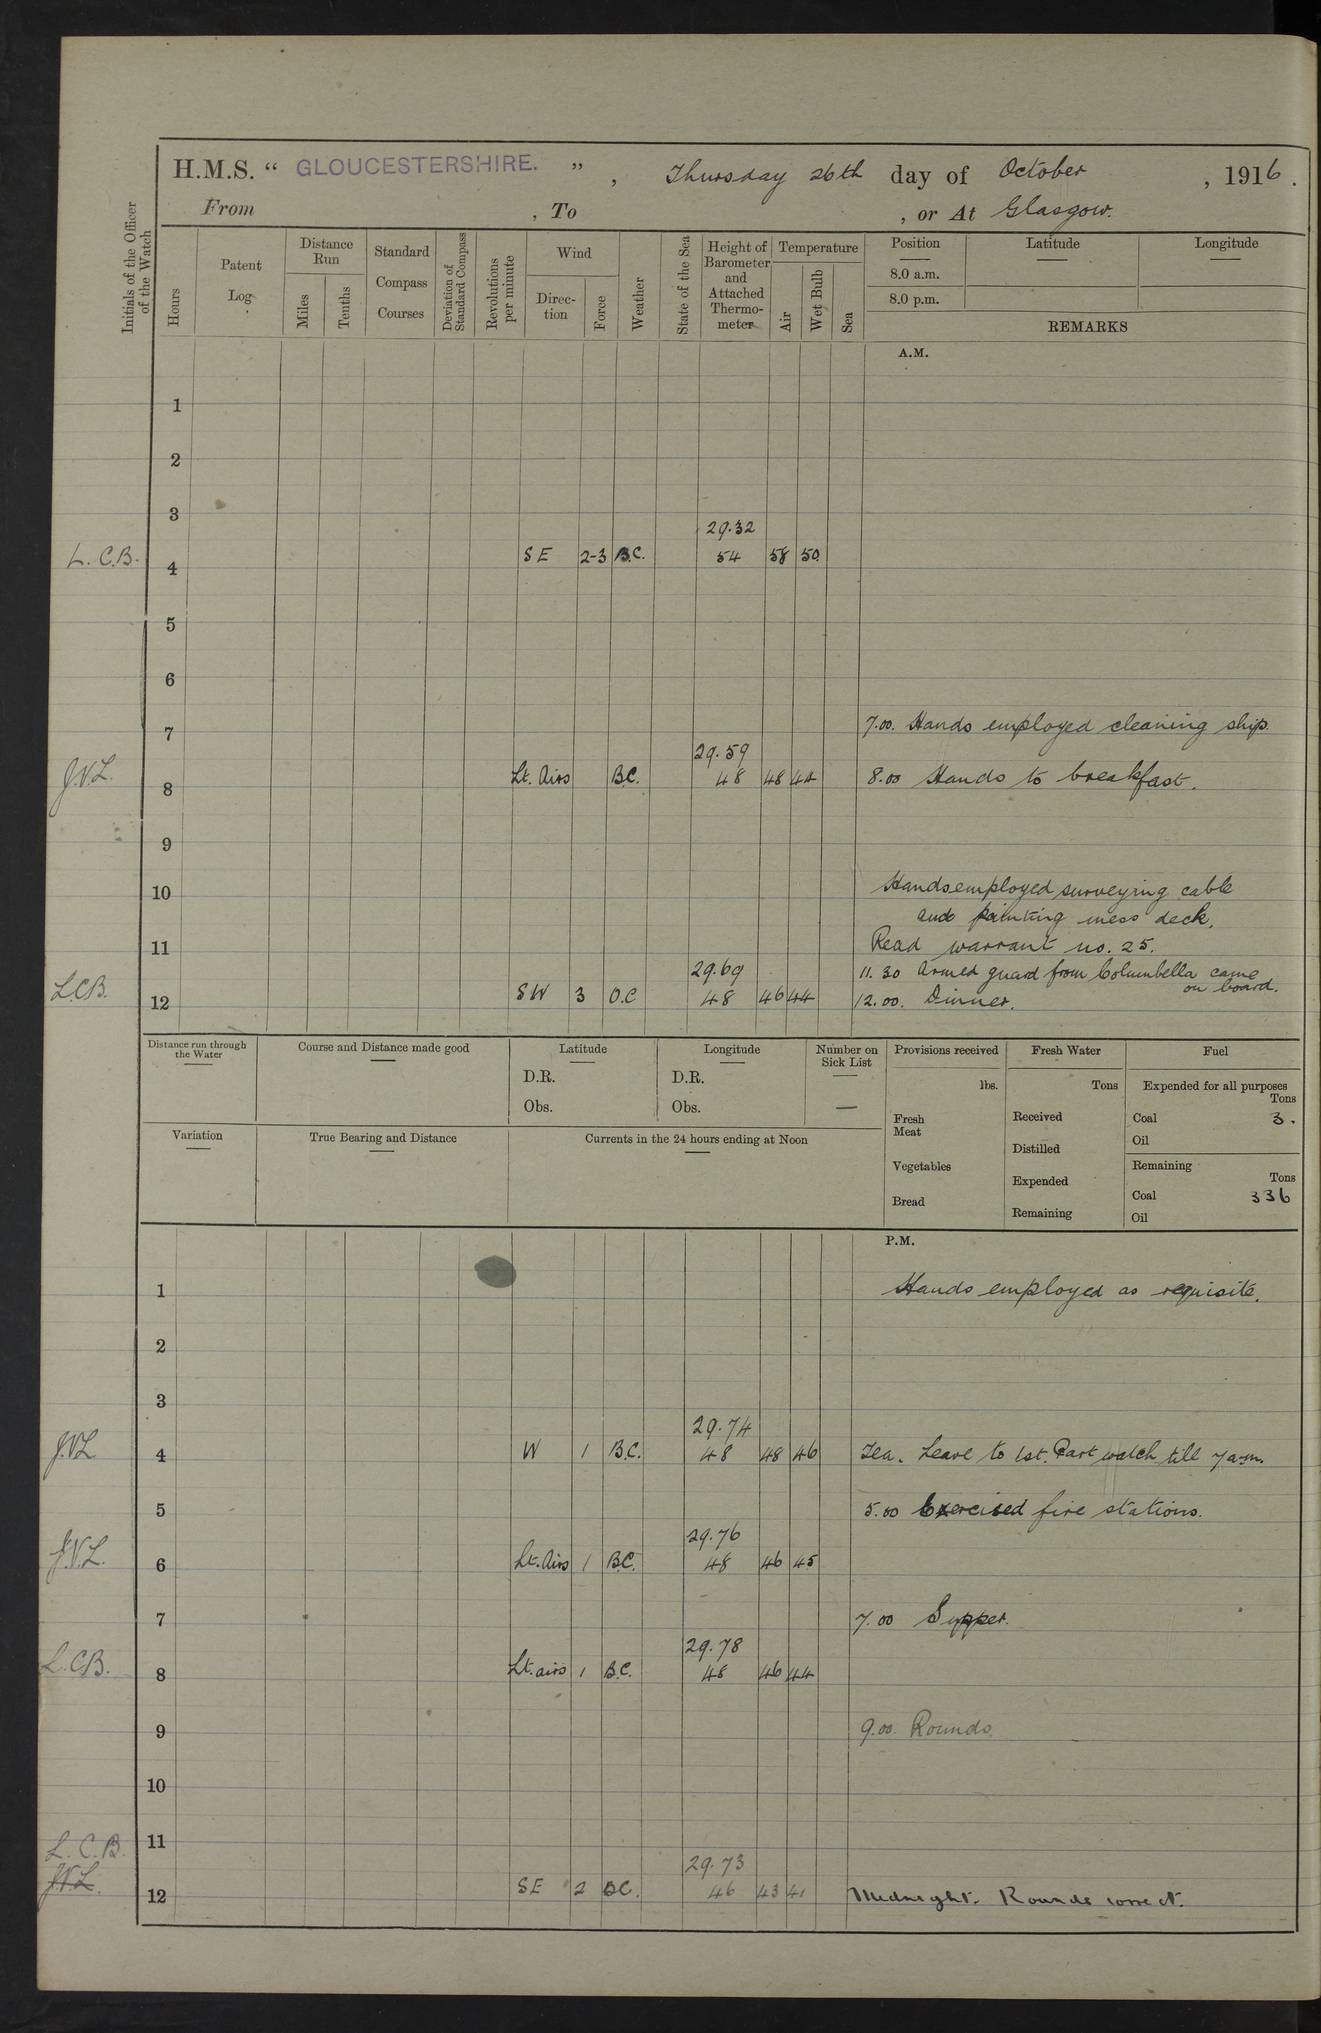 H.M.S. “ GLOUCESTERSHIRE. ” , Thursday 26th day of October , 1916.
From , To , or At Glasgow.
Initials of the Officer of the Watch
Hours
Patent Log
Distance Run
Miles
Tenths
Standard Compass Courses
Deviation of Standard Compass
Revolutions per minute
Wind
Direction
Force
Weather
State of the Sea
Height of Barometer and Attached Thermometer
Temperature
Air
Wet Bulb
Sea
Position
Latitude
Longitude
8.0 a.m.
8.0 p.m.
REMARKS
A.M.
1
2
3
29.32
L.C.B. 4 SE 2-3 B.C. 54 58 50
5
6
7 7.00. Hands employed cleaning ship.
29.59
J.V.L. 8 Lt. Airs B.C. 48 48 44 8.00 Hands to breakfast.
9
10 Hands employed surveying cable
and painting mess deck.
11 Read warrant no. 25.
29.69 11.30 Armed guard from Columbella came on board.
L.C.B. 12 SW 3 O.C 48 46 44 12.00. Dinner.
Distance run through the Water
Course and Distance made good
Latitude
D.R.
Obs.
Longitude
D.R.
Obs.
Number on Sick List
—
Provisions received
lbs.
Fresh Meat
Vegetables
Bread
Fresh Water
Tons
Received
Distilled
Expended
Remaining
Fuel
Expended for all purposes
Tons
Coal 3.
Oil
Remaining
Tons
Coal 336
Oil
Variation
True Bearing and Distance
Currents in the 24 hours ending at Noon
P.M.
1 Hands employed as requisite.
2
3
29.74
J.V.L 4 W 1 B.C. 48 48 46 Tea. Leave to 1st. Part watch till 7 a.m.
5 5.00 Exercised fire stations.
29.76
J.V.L. 6 Lt. Airs 1 B.C. 48 46 45
7 7.00 Supper.
29.78
L.C.B. 8 Lt. airs 1 B.C. 48 46 44
9 9.00. Rounds.
10
L.C.B. 11
29.73
J.V.L. 12 SE 2 BC. 46 43 41 Midnight. Rounds correct.